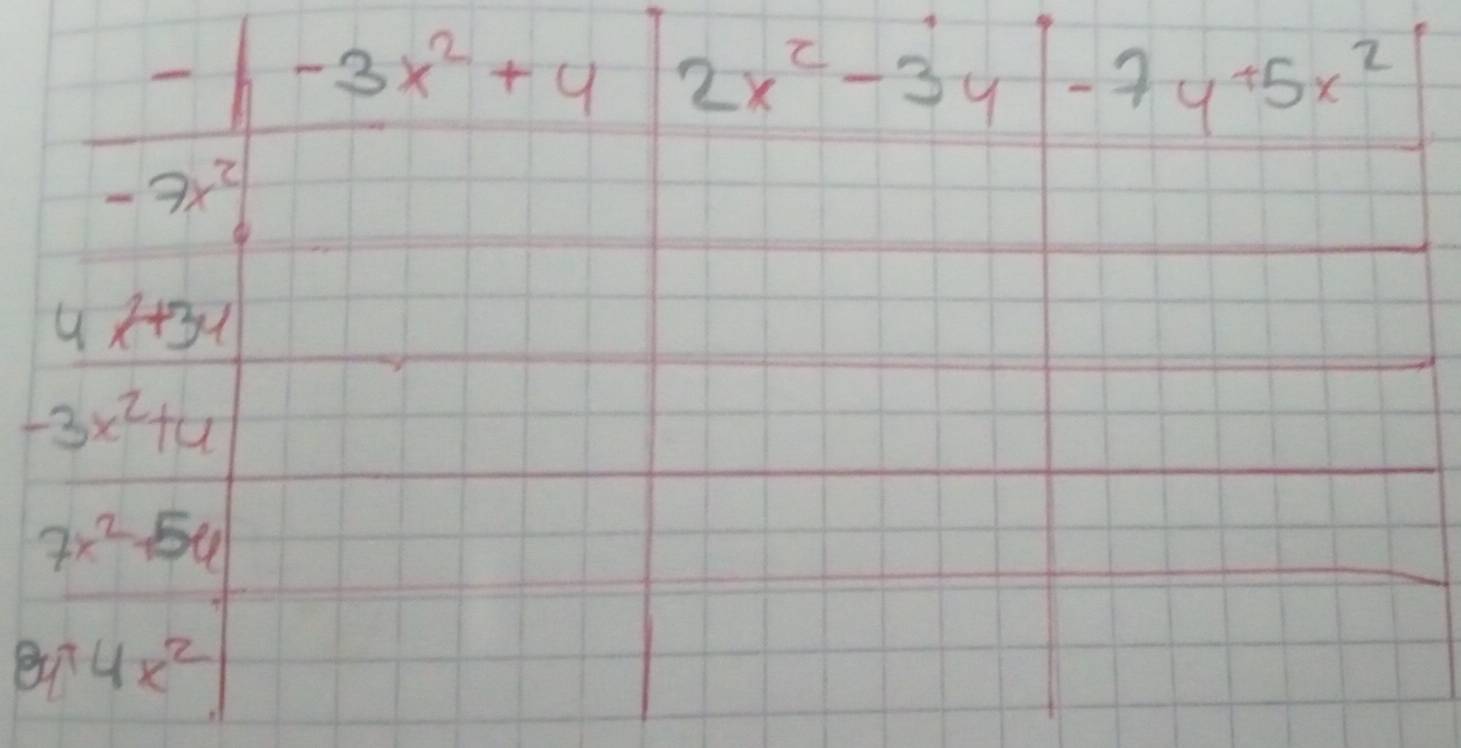 - -3x² + y 2x² - 3y -7y+5x²
-7x²
4x²+3y
-3x²+y
7x²-5y
8y+4x²